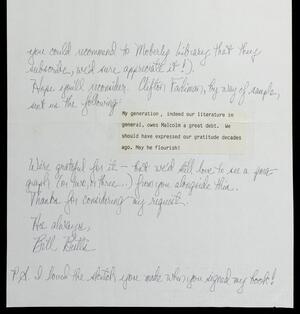 you could recommend to Moberly Library that they
subscribe, we'd sure appreciate it!).
Hope you'll reconsider. Clifton Fadiman, by way of sample,
sent us the following:
My generation, indeed our literature in
general, owes Malcolm a great debt. We
should have expressed our gratitude decades
ago. May he flourish!
We're grateful for it — but we'd still love to see a para-
graph (or two, or three...) from you alongside this.
Thanks for considering my request.
As always,
Bill
P.S. I loved the sketch you made when you signed my book!